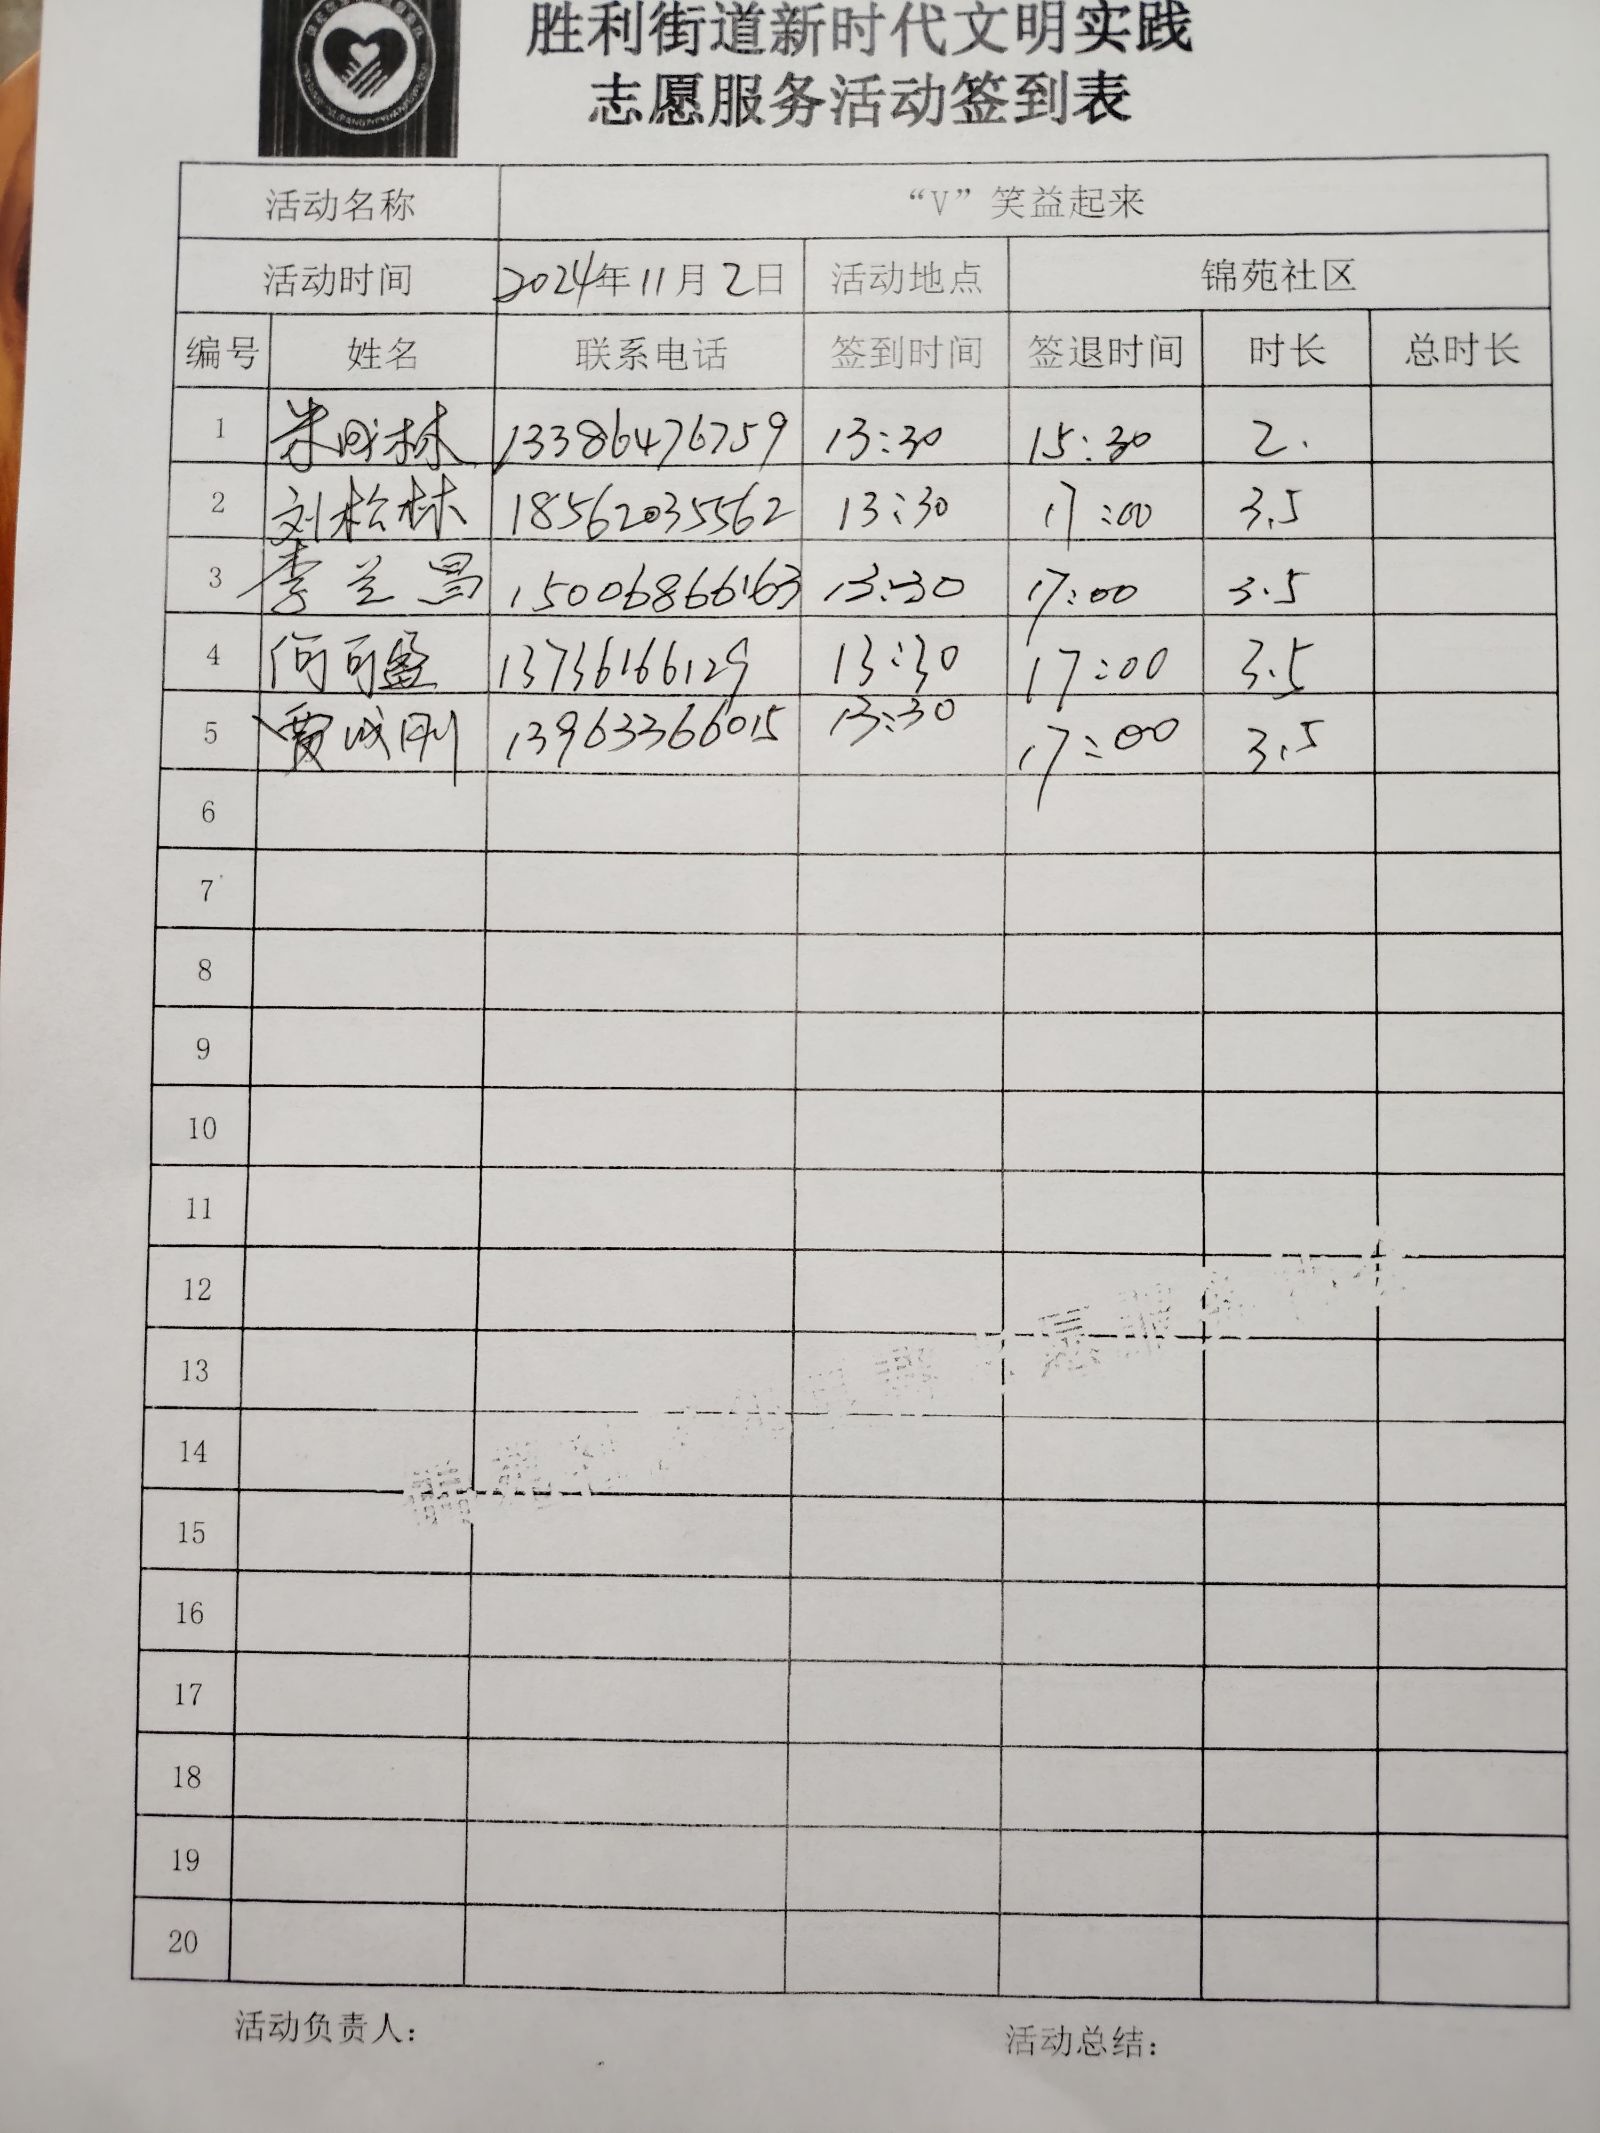 胜利街道新时代文明实践
志愿服务活动签到表
活动名称 “V”笑益起来
活动时间 2024年11月2日 活动地点 锦苑社区
编号 姓名 联系电话 签到时间 签退时间 时长 总时长
1 朱成林 13386476759 13:30 15:30 2.
2 刘松林 18562035562 13:30 17:00 3.5
3 李兰昌 15006866163 13:30 17:00 3.5
4 何可盈 13736166129 13:30 17:00 3.5
5 贾成刚 13963366015 13:30 17:00 3.5
6
7
8
9
10
11
12
13
14
15
16
17
18
19
20
活动负责人: 活动总结: